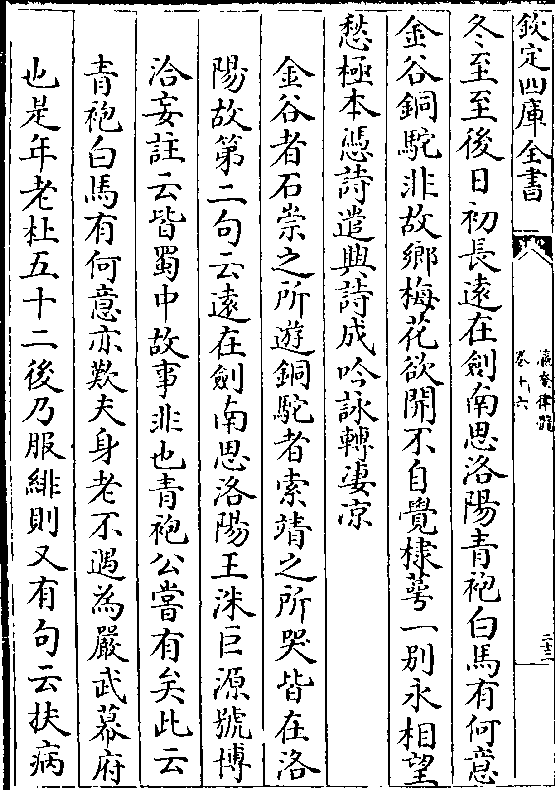 欽定四庫全書
瀛奎律髓
卷十六
二十三
冬至至後日初長遠在劍南思洛陽青袍白馬有何意
金谷銅駝非故鄉梅花欲開不自覺棣萼一别永相望
愁極本憑詩遣興詩成吟詠轉凄凉
金谷者石崇之所遊銅駝者索靖之所哭皆在洛
陽故第二句云遠在劍南思洛陽王洙巨源號博
洽妄註云皆蜀中故事非也青袍公嘗有矣此云
青袍白馬有何意亦歎夫身老不遇為嚴武幕府
也是年老杜五十二後乃服緋則又有句云扶病